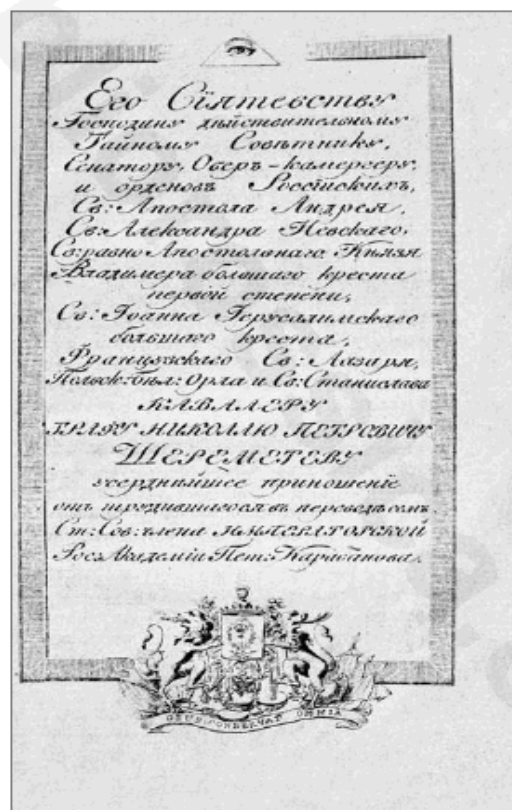 Его Сіятельству
Господину дѣйствительному
Тайному Совѣтнику,
Сенатору, Оберъ-камергеру,
и орденовъ Россійскихъ,
Св: Апостола Андрея,
Св: Александра Невскаго,
Св: равно Апостольнаго Князя
Владимера большаго креста
первой степени,
Св: Іоанна Іерусалимскаго
большаго креста,
Французскаго Св: Лазаря,
Польск: бѣл: Орла и Св: Станислава
КАВАЛЕРУ
ГРАФУ НИКОЛАЮ ПЕТРОВИЧУ
ШЕРЕМЕТЕВУ
усерднѣйшее приношеніе
отъ трудившагося въ переводѣ семъ
Ст: Сов: члена ИМПЕРАТОРСКОЙ
Рос: Академіи Пет: Карабанова.
DEUS CONSERVAT OMNIA